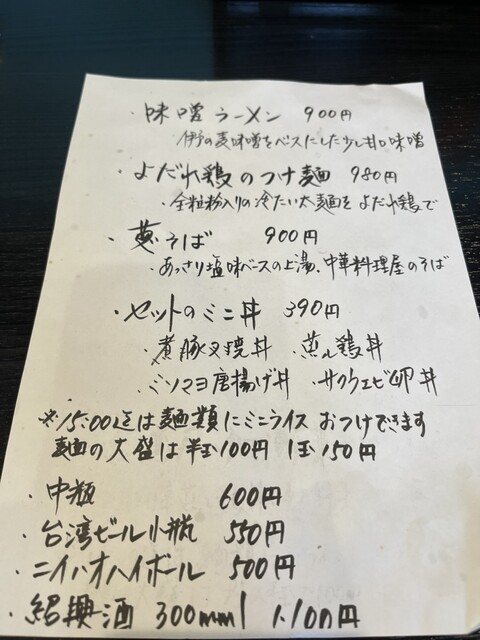 ・味噌ラーメン 900円
伊予の麦味噌をベースにした少し甘口味噌
・よだれ鶏のつけ麺 980円
・全粒粉入りの冷たい太麺を よだれ鶏で
・葱そば 900円
・あっさり塩味ベースの上湯、中華料理屋のそば
・セットのミニ丼 390円
・煮豚叉焼丼 ・蒸し鶏丼
・ミソマヨ唐揚げ丼 ・サクラエビ卵丼
※15:00迄は麺類にミニライス おつけできます
麺の大盛は半玉100円 1玉150円
・中瓶 600円
・台湾ビール小瓶 550円
・ニイハオハイボール 500円
・紹興酒 300mml 1,100円